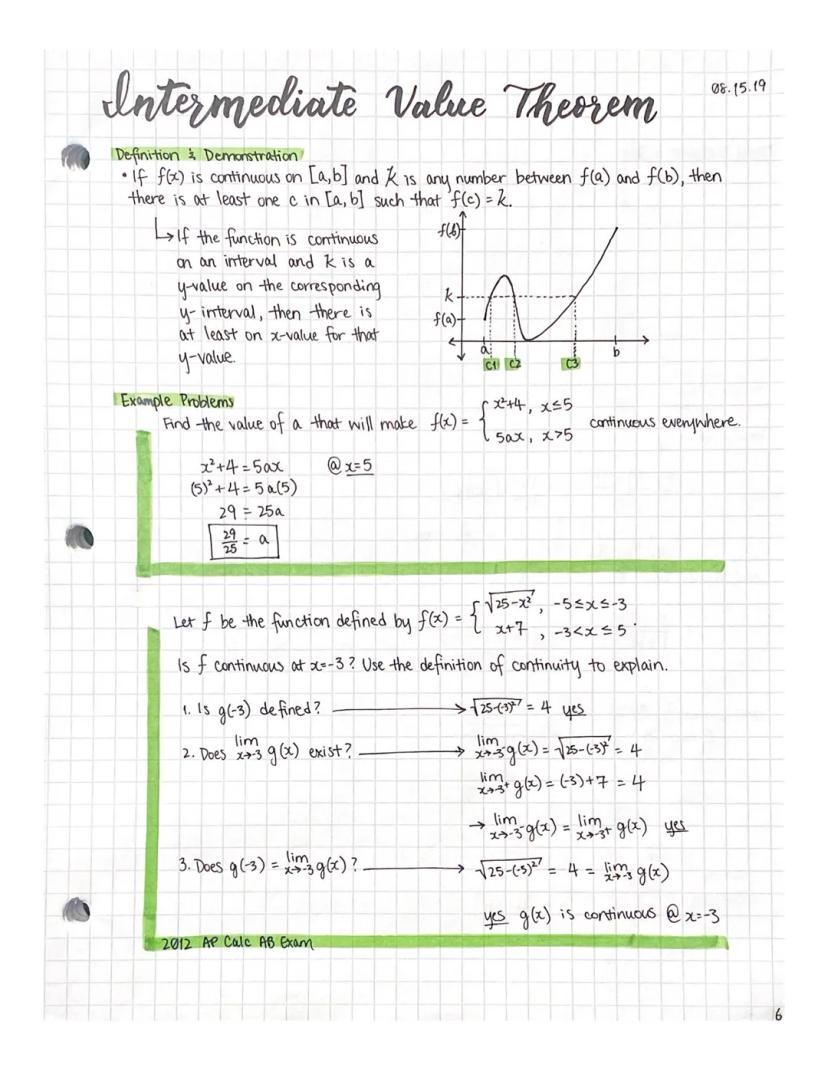 Intermediate Value Theorem
08.15.19
Definition & Demonstration
• If f(x) is continuous on [a,b] and k is any number between f(a) and f(b), then
there is at least one c in [a,b] such that f(c) = k.
↳ If the function is continuous
on an interval and k is a
y-value on the corresponding
y-interval, then there is
at least on x-value for that
y-value.
f(b)
k
f(a)
a b
C1 C2 C3
Example Problems
Find the value of a that will make f(x) = { x²+4, x≤5
5ax, x>5 continuous everywhere.
x²+4 = 5ax @ x=5
(5)²+4 = 5a(5)
29 = 25a
29/25 = a
Let f be the function defined by f(x) = { √25-x², -5≤x≤-3
x+7, -3<x≤5.
Is f continuous at x=-3? Use the definition of continuity to explain.
1. Is g(-3) defined? → √25-(-3)² = 4 yes
2. Does lim x→-3 g(x) exist? → lim x→-3⁻ g(x) = √25-(-3)² = 4
lim x→-3⁺ g(x) = (-3)+7 = 4
→ lim x→-3⁻ g(x) = lim x→-3⁺ g(x) yes
3. Does g(-3) = lim x→-3 g(x)? → √25-(-5)² = 4 = lim x→-3 g(x)
yes g(x) is continuous @ x=-3
2012 AP Calc AB Exam
6